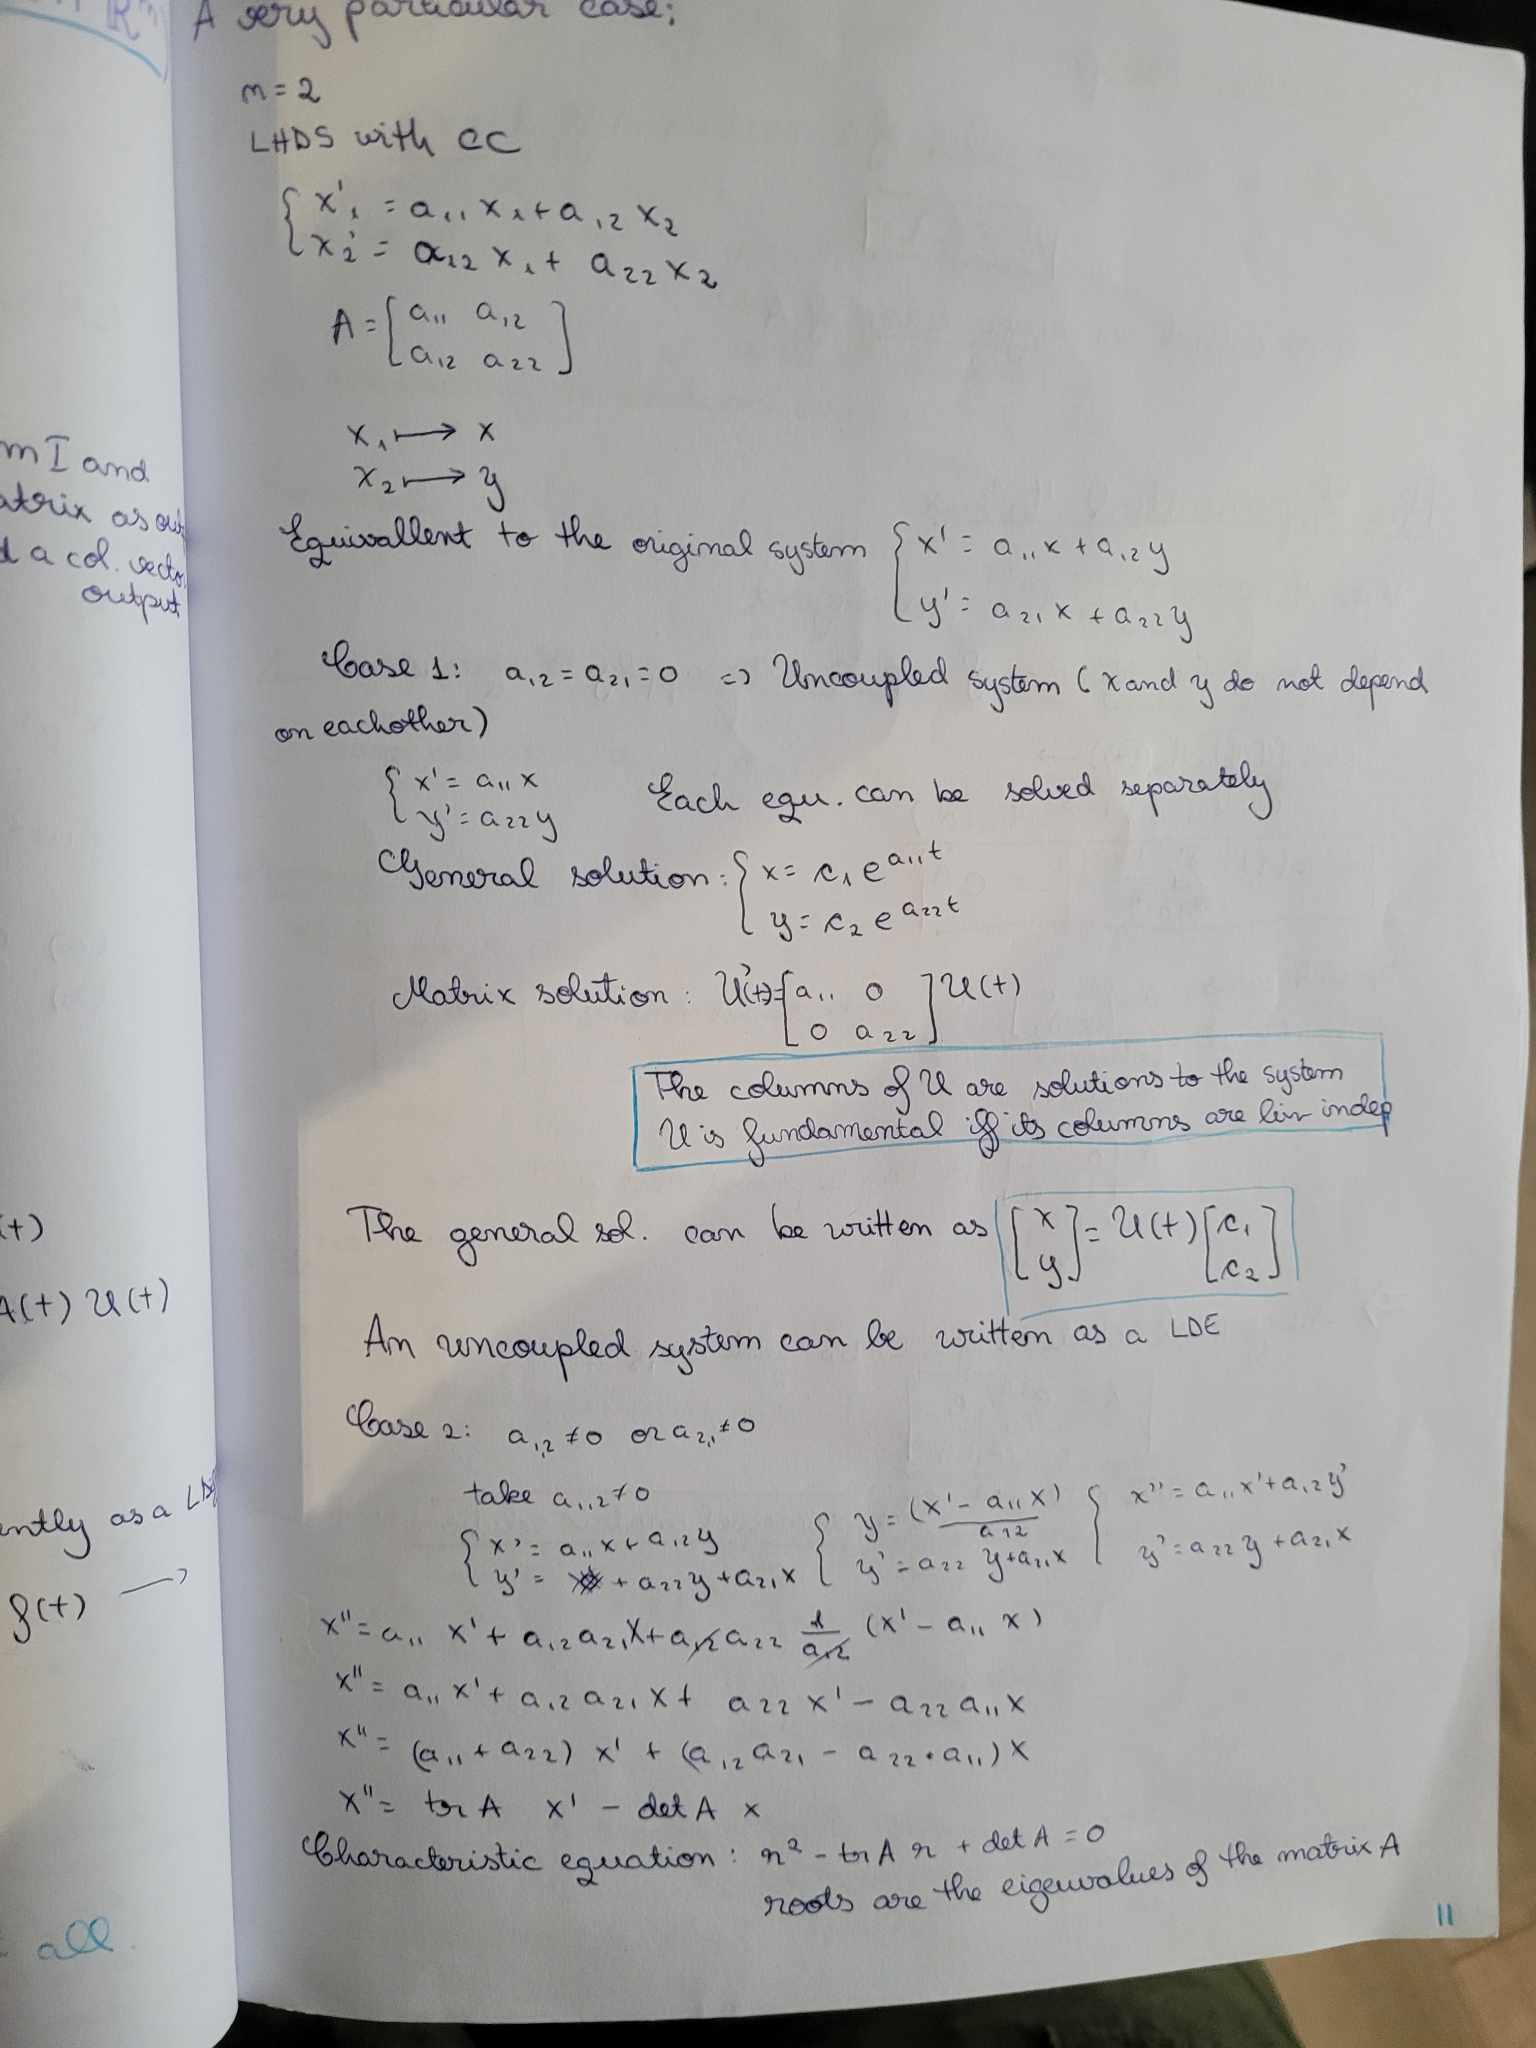 R^n
m I and
atrix as out
d a col. vector
output
(t)
A(t) U(t)
ently as a
f(t) →
all.
A very particular case:
n=2
LHDS with CC
{ x'₁ = a₁₁ x₁ + a₁₂ x₂
x₂' = a₁₂ x₁ + a₂₂ x₂
A = [ a₁₁ a₁₂
a₁₂ a₂₂ ]
x₁ ↦ x
x₂ ↦ y
Equivallent to the original system { x' = a₁₁x + a₁₂y
y' = a₂₁x + a₂₂y
Case 1: a₁₂ = a₂₁ = 0 => Uncoupled system (x and y do not depend
on eachother)
{ x' = a₁₁x
y' = a₂₂y Each equ. can be solved separately
General solution: { x = c₁ e^{a₁₁t}
y = c₂ e^{a₂₂t}
Matrix solution: U'(t) = [ a₁₁ 0
0 a₂₂ ] U(t)
The columns of U are solutions to the system
U is fundamental iff its columns are lin indep
The general sol. can be written as [ x
y ] = U(t) [ c₁
c₂ ]
An uncoupled system can be written as a LDE
Case 2: a₁₂ ≠ 0 or a₂₁ ≠ 0
take a₁,₂ ≠ 0
{ x' = a₁₁x + a₁₂y { y = (x' - a₁₁x)/a₁₂ { x'' = a₁₁x' + a₁₂y'
y' = + a₂₂y + a₂₁x y' = a₂₂ y + a₂₁x y' = a₂₂y + a₂₁x
x'' = a₁₁ x' + a₁₂ a₂₁ x + a₁₂ a₂₂ 1/a₁₂ (x' - a₁₁ x)
x'' = a₁₁ x' + a₁₂ a₂₁ x + a₂₂ x' - a₂₂ a₁₁ x
x'' = (a₁₁ + a₂₂) x' + (a₁₂ a₂₁ - a₂₂ • a₁₁) x
x'' = tr A x' - det A x
Characteristic equation: r² - tr A r + det A = 0
roots are the eigenvalues of the matrix A
11